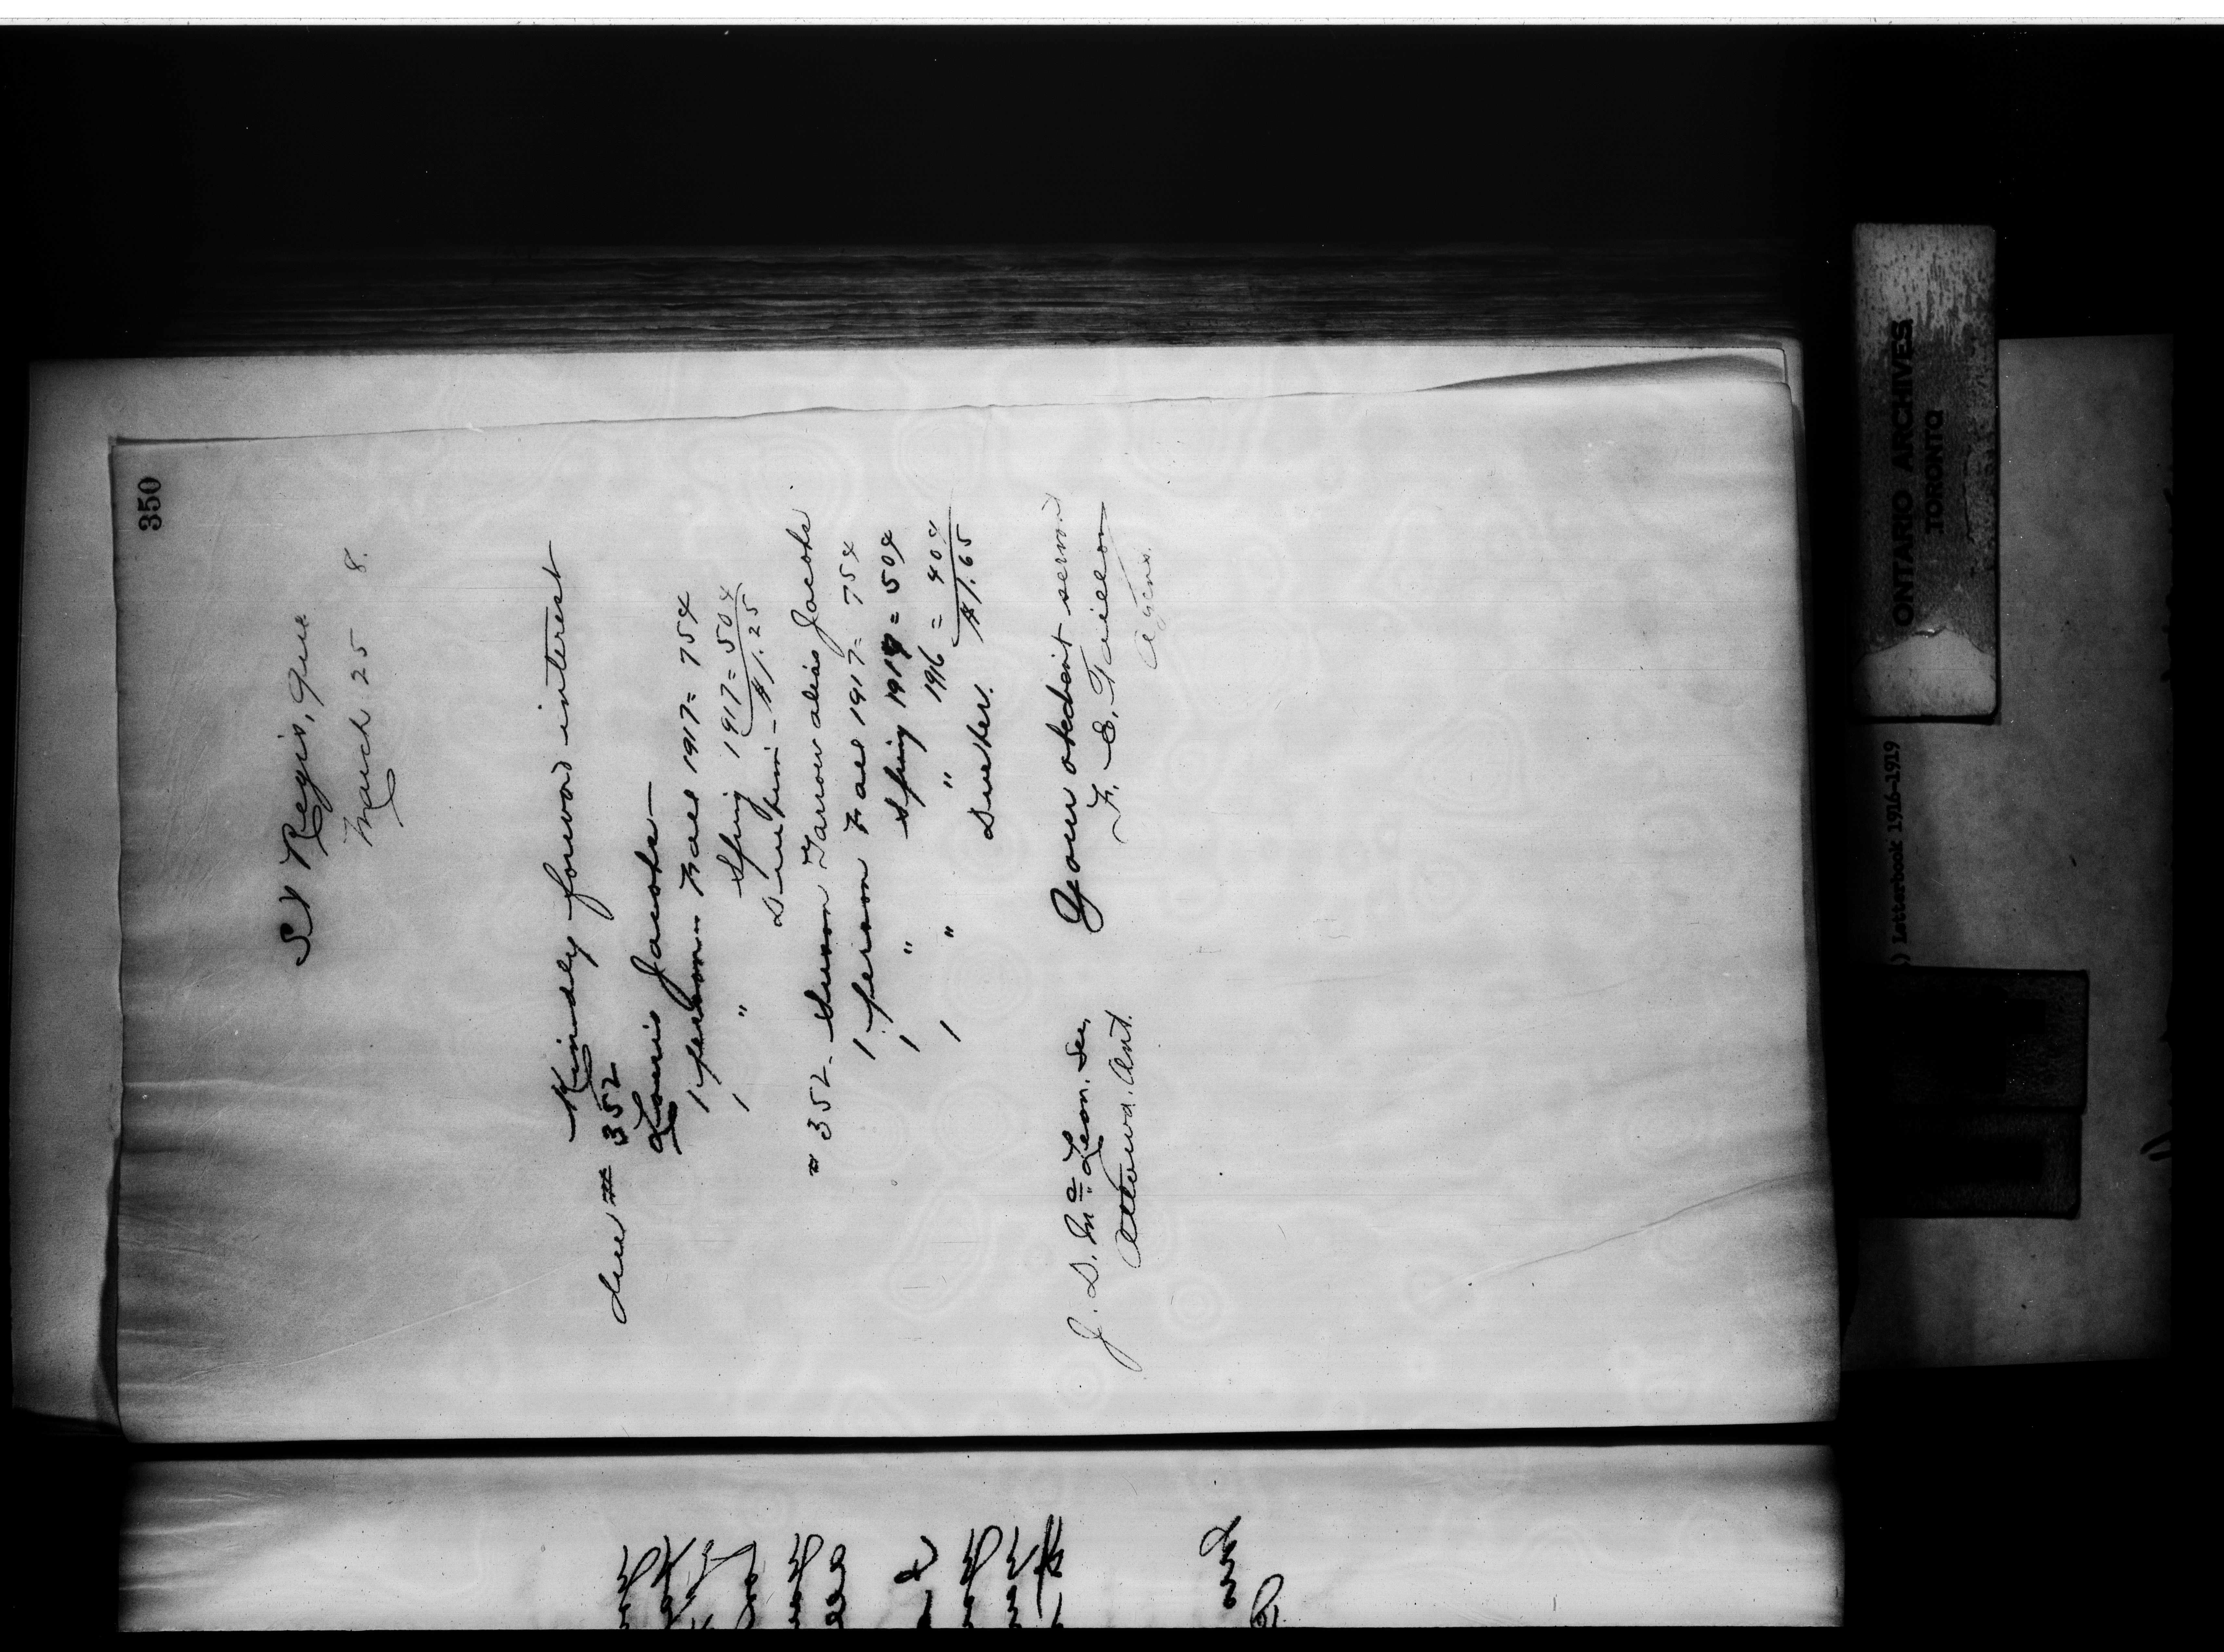 350
St Regis, Que
March 25 8.
Kindly forward interest
due # 352
Louis Jacobs—
1 person - Fall 1917 = 75¢
1 " Spring 1917 = 50¢
- $1.25
# 352 - Tarrow alias Jacobs
1 person Fall 1917 = 75¢
1 " Spring 1917 = 50¢
1 " " 1916 = 40¢
$1.65
Your obedient servant
J. D. McLean. Sec. F. E. Taillon
Ottawa. Ont. Agent.
ONTARIO ARCHIVES
TORONTO
) Letterbook 1916-1919